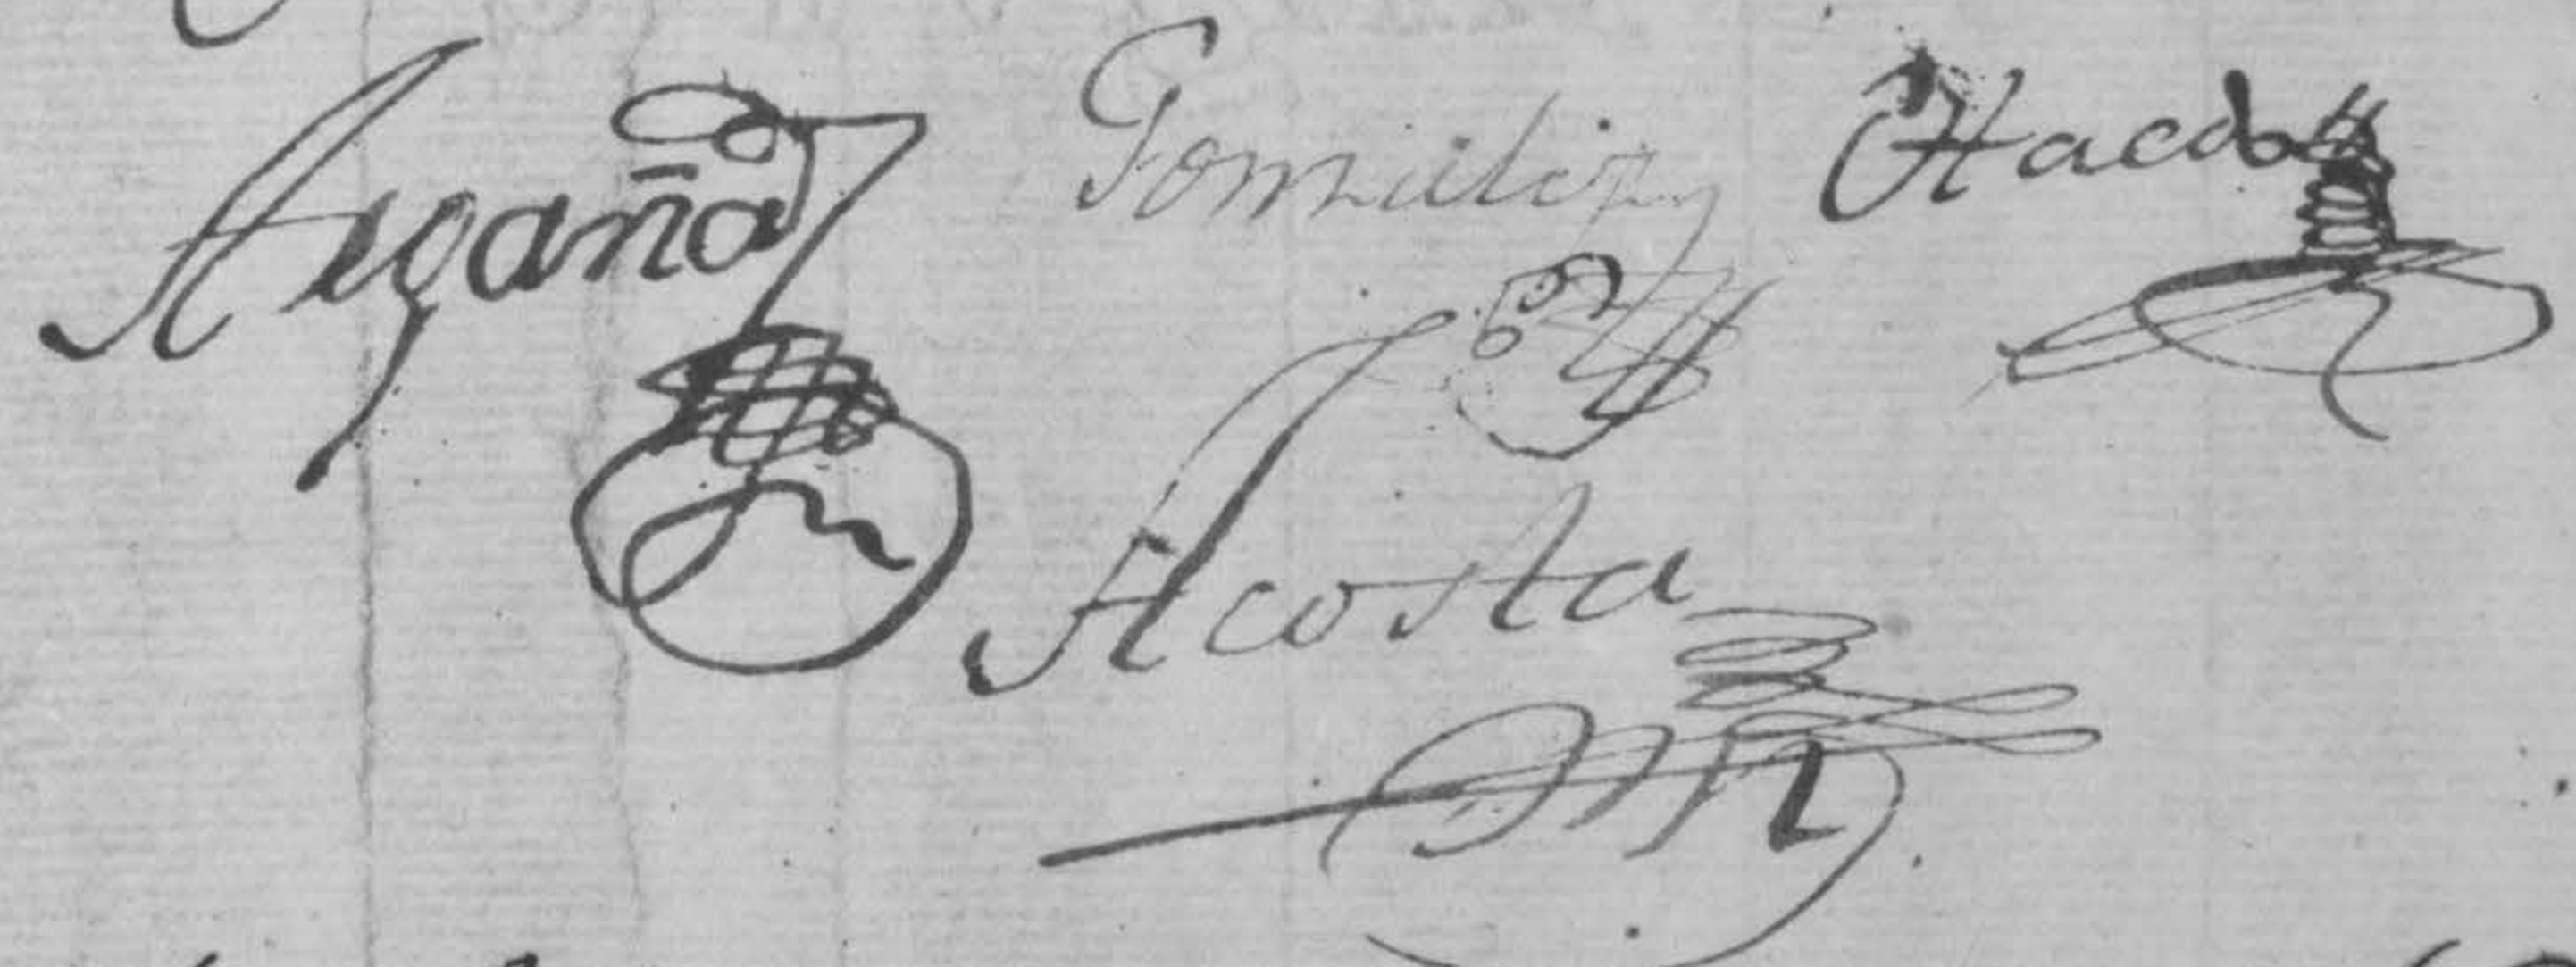 Argaña Gonzalez Haedo
Acosta